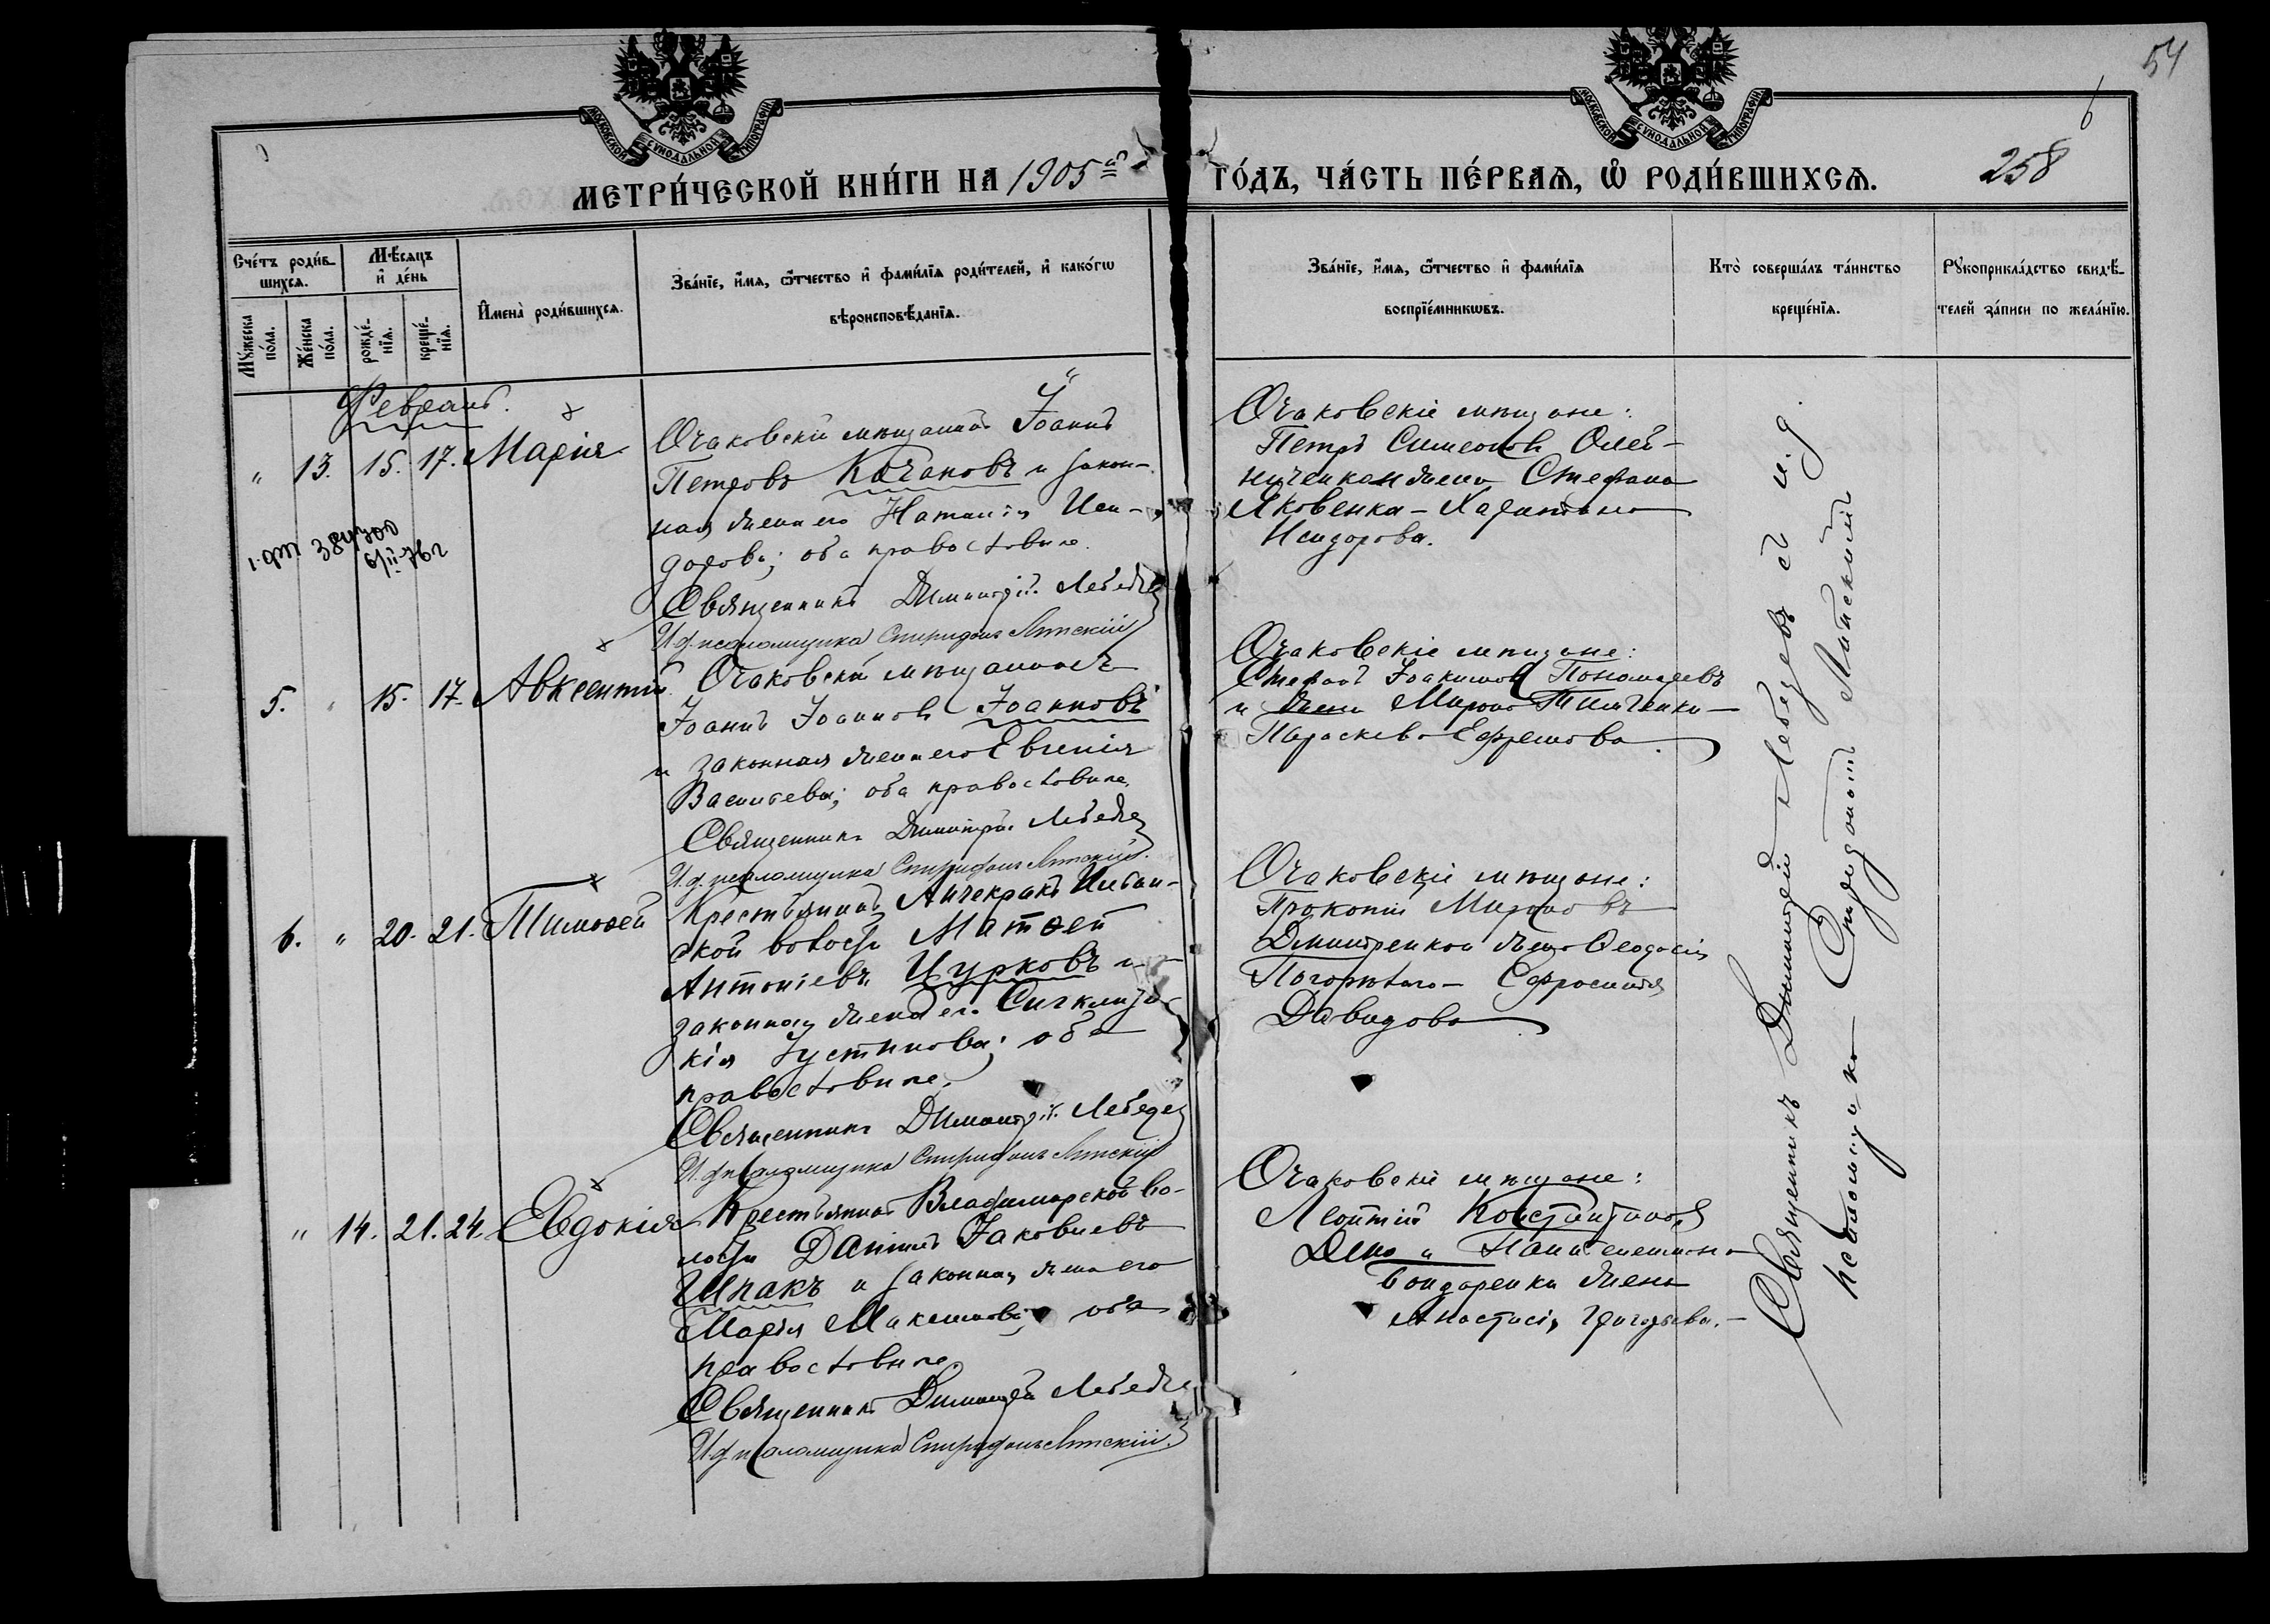 54
6
258
МОСКОВСКОЙ СѴНОДАЛЬНОЙ ТИПОГРАФІИ
МОСКОВСКОЙ СѴНОДАЛЬНОЙ ТИПОГРАФІИ
МЕТРИ́ЧЕСКОЙ КНИ́ГИ НА 1905й ГО́ДЪ, ЧА́СТЬ ПЕ́РВАЯ, Ѡ РОДИ́ВШИХСЯ.
Сче́тъ роди́вшихся.
Му́жеска по́ла.
Же́нска по́ла.
Мѣ́сяцъ и де́нь
рожде́нія.
креще́нія.
Имена̀ роди́вшихся.
Зва́ніе, и́мя, ѻ́тчество и фами́лія роди́телей, и како́гѡ
вѣроисповѣ́данія.
Зва́ніе, и́мя, ѻ́тчество и фами́лія
воспріе́мникѡвъ.
Кто̀ соверша́лъ та́инство
креще́нія.
Рꙋкоприкла́дство свидѣ́-
телей за́писи по жела́нію.
Февраль.
" 13. 15. 17. Марія
Очаковскій мѣщанинъ Іоаннъ
Петровъ Качановъ и закон-
ная жена его Наталія Иси-
дорова; оба православные.
Священникъ Димитрій Лебедев
И. д. псаломщика Спиридонъ Липскій
Очаковскіе мѣщане:
Петръ Симеоновъ Олей-
ниченко и жена Стефана
Яковенка – Харитина
Исидорова.
5. " 15. 17. Авксентій
Очаковскій мѣщанинъ
Іоаннъ Іоанновъ Іоанновъ
и законная жена его Евгенія
Васильева; оба православные.
Священникъ Димитрій Лебедев
И. д. псаломщика Спиридонъ Липскій.
Очаковскіе мѣщане:
Стефанъ Іоакимовъ Пономаревъ
и жена Мирона Тимченки –
Параскева Ефремова.
6. " 20. 21. Тимоѳей
Крестьянинъ Анчекракъ Илбан-
ской волости Матѳей
Антоніевъ Цурковъ и
законная жена его Сигклити-
кія Іустинова; оба
православные.
Священникъ Димитрій Лебедев
И. д. псаломщика Спиридонъ Липскій
Очаковскіе мѣщане:
Прокопій Мироновъ
Дмитренко и жена Ѳеодосія
Погорѣлаго – Ефросинія
Давидова
" 14. 21. 24. Евдокія
Крестьянинъ Владимирской во-
лости Даніилъ Іаковлевъ
Шпакъ и законная жена его
Марія Максимова; оба
православные.
Священникъ Димитрій Лебедев
И. д. псаломщика Спиридонъ Липскій.
Очаковскіе мѣщане:
Леонтій Константиновъ
и Пантелеимона
Бондаренки жена
Анастасія Григорьева. –
Священникъ Димитрій Лебедевъ съ и. д.
псаломщика Спиридономъ Липскимъ